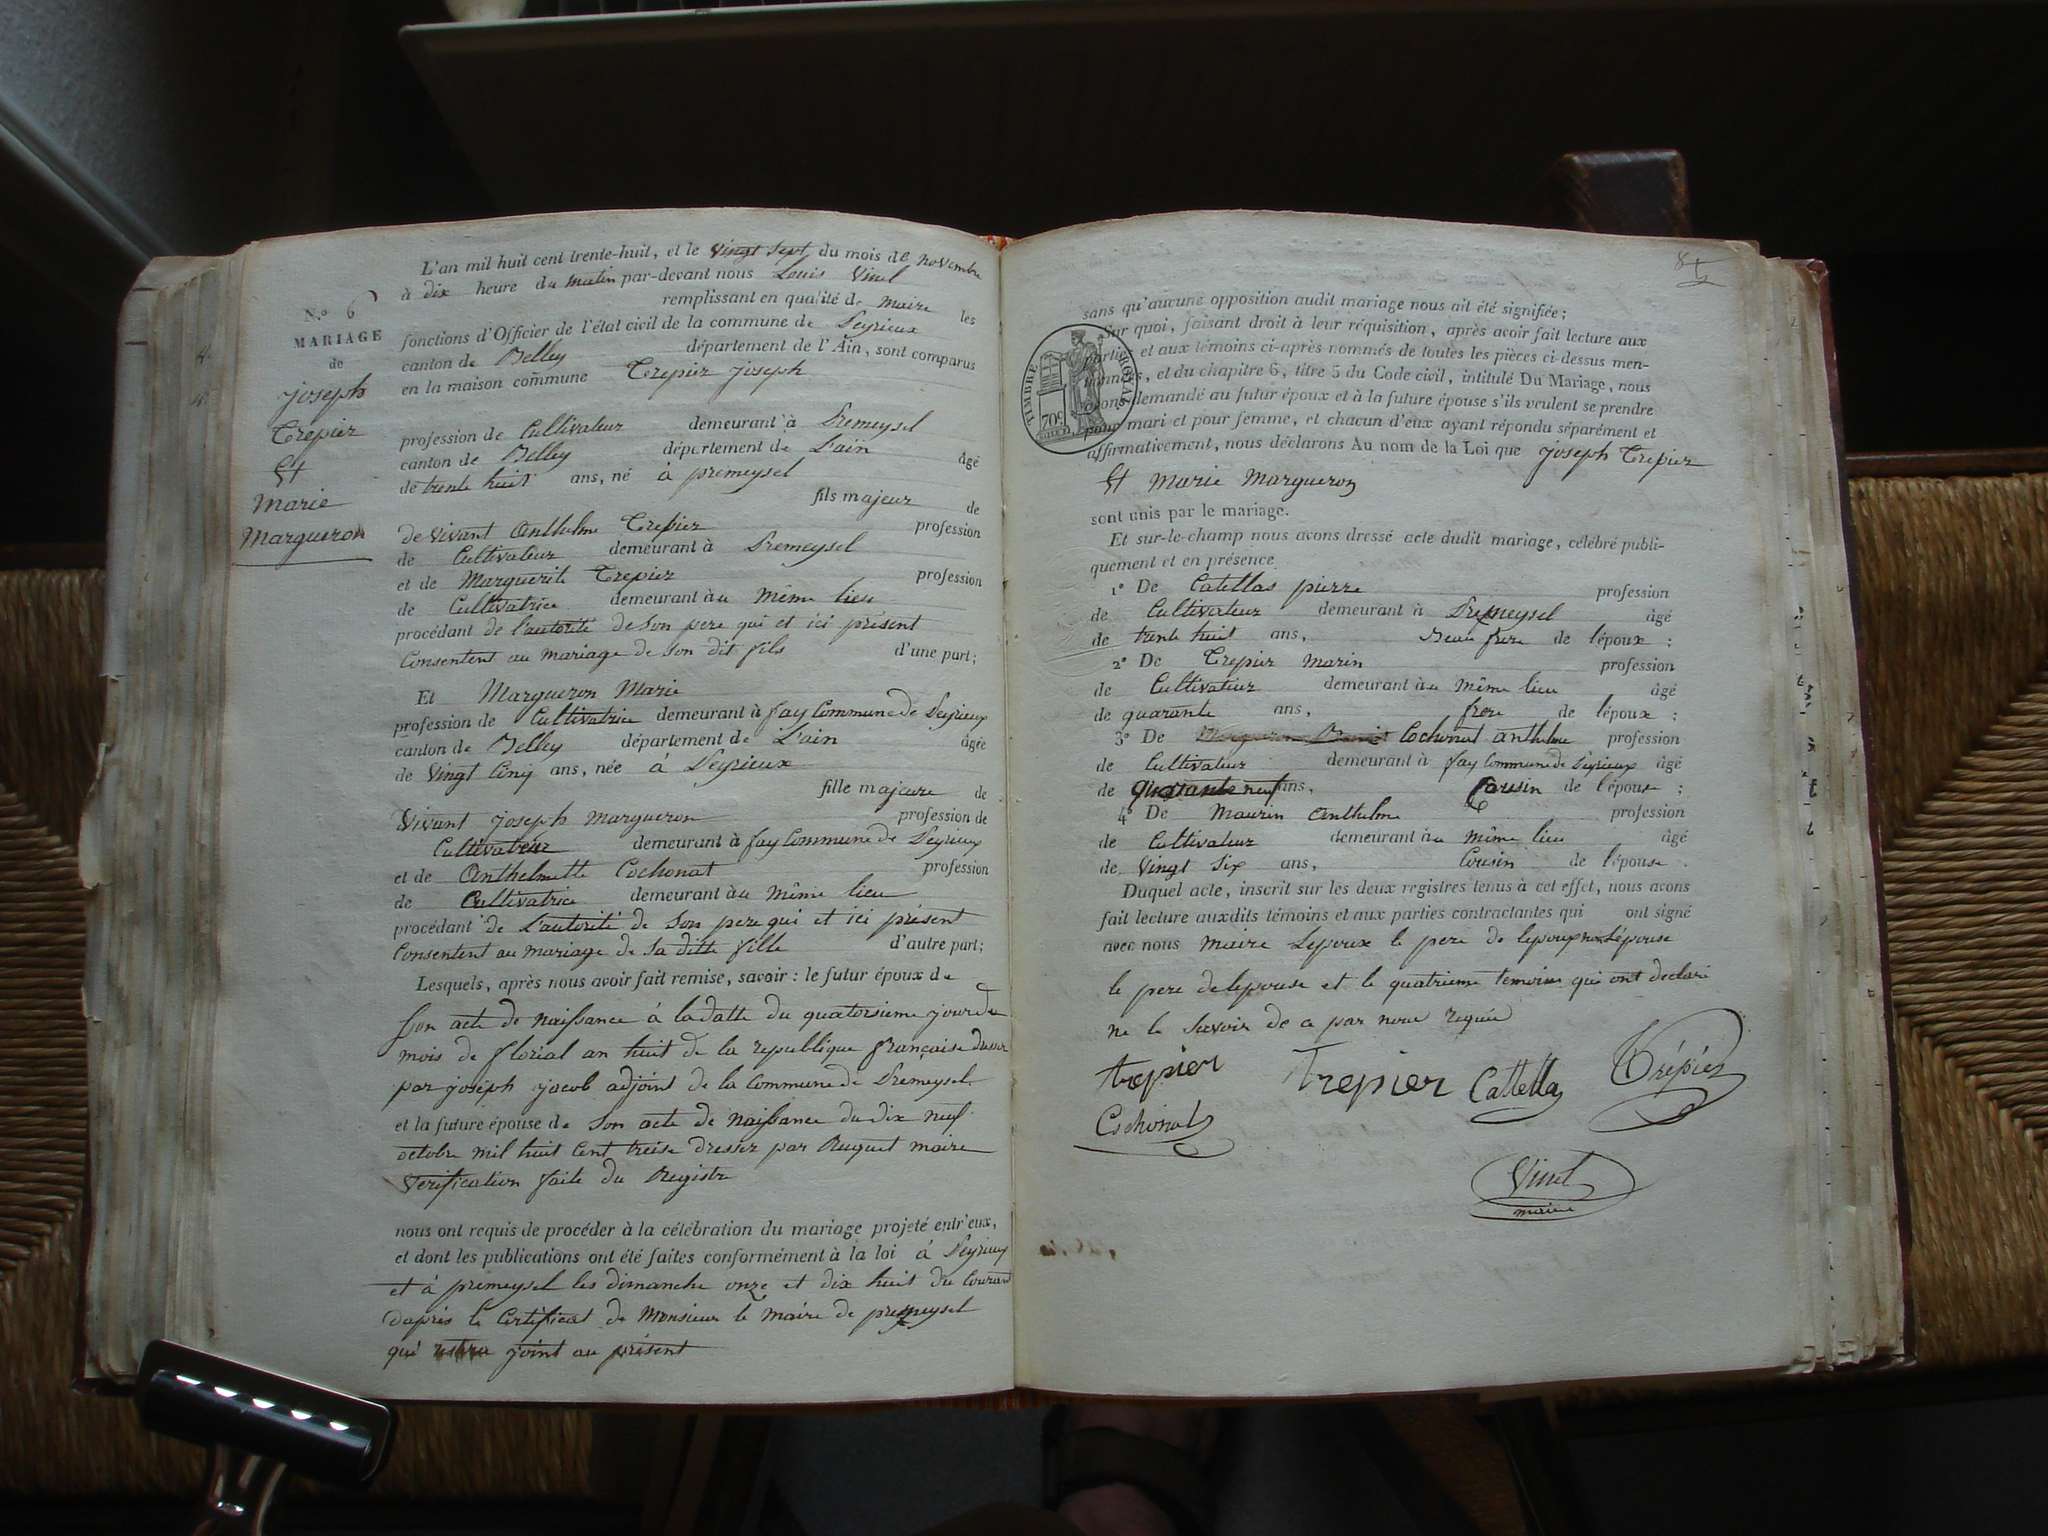 L'an mil huit cent trente-huit, et le vingt sept du mois de novembre
à dix heure du matin par-devant nous Louis Vinel
remplissant en qualité de maire les
fonctions d'Officier de l'état civil de la commune de Peyrieux
canton de Belley département de l'Ain, sont comparus
en la maison commune Trepier joseph
N.º 6
MARIAGE
de
joseph
Trepier
Et
Marie
Margueron
profession de Cultivateur demeurant à Premeysel
canton de Belley département de L'ain âgé
de trente huit ans, né à premeysel
fils majeur de
de vivant Anthelme Trepier profession
de Cultivateur demeurant à Premeysel
et de Marguerite Trepier profession
de Cultivatrice demeurant au même lieu
procédant de l'autorité de Son pere qui et ici présent
Consentent au mariage de Son dit fils d'une part;
Et Margueron Marie
profession de Cultivatrice demeurant à fay Commune de Peyrieux
canton de Belley département de L'ain âgée
de Vingt Cinq ans, née à Peyrieux
fille majeure de
Vivant joseph Margueron profession de
Cultivateur demeurant à fay Commune de Peyrieux
et de Anthelmette Cochonat profession
de Cultivatrice demeurant au même lieu
procédant de L'autorité de Son pere qui et ici présent
Consentent au mariage de Sa ditte fille d'autre part;
Lesquels, après nous avoir fait remise, savoir : le futur époux de
Son acte de naissance à la datte du quatorsieme jour du
mois de florial an huit de la republique française dresser
par joseph jacob adjoint de la Commune de Premeysel
et la future épouse de Son acte de naissance du dix neuf
octobre mil huit Cent treise dresser par Ruquet maire
Verification faite du Registre
nous ont requis de procéder à la célébration du mariage projeté entr'eux,
et dont les publications ont été faites conformément à la loi à Peyrieux
et à premeysel les dimanche onze et dix huit du Courant
daprès le Certificat de Monsieur le maire de premeysel
qui restera joint au présent
84
sans qu'aucune opposition audit mariage nous ait été signifiée;
Sur quoi, faisant droit à leur réquisition, après avoir fait lecture aux
parties et aux témoins ci-après nommés de toutes les pièces ci-dessus men-
tionnées, et du chapitre 6, titre 5 du Code civil, intitulé Du Mariage, nous
avons demandé au futur époux et à la future épouse s'ils veulent se prendre
pour mari et pour femme, et chacun d'eux ayant répondu séparément et
affirmativement, nous déclarons Au nom de la Loi que joseph Trepier
TIMBRE ROYAL
70c
Et Marie Margueron
sont unis par le mariage.
Et sur-le-champ nous avons dressé acte dudit mariage, célébré publi-
quement et en présence
1º De Catellas pierre profession
de Cultivateur demeurant à Premeysel âgé
de trente huit ans, Beau frere de l'époux ;
2º De Trepier Marin profession
de Cultivateur demeurant au même lieu âgé
de quarante ans, frere de l'époux ;
3º De Cochonat Anthelme profession
de Cultivateur demeurant à fay Commune de Peyrieux âgé
de quarante neuf ans, Cousin de l'épouse ;
4º De Maurin Anthelme profession
de Cultivateur demeurant au même lieu âgé
de Vingt Six ans, Cousin de l'épouse
Duquel acte, inscrit sur les deux registres tenus à cet effet, nous avons
fait lecture auxdits témoins et aux parties contractantes qui ont signé
avec nous maire Lepoux le pere de lepoux non Lépouse
le pere de lepouse et le quatrieme temoins qui ont declaré
ne le Savoir de ce par nous requis
trepier Trepier Catella Trépier
Cochonat
Vinel
maire